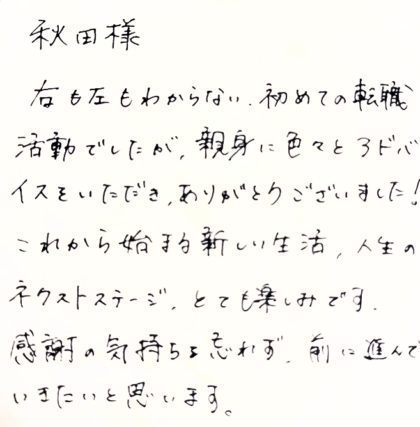 秋田様
右も左もわからない、初めての転職
活動でしたが、親身に色々とアドバ
イスをいただき、ありがとうございました!
これから始まる新しい生活、人生の
ネクストステージ、とても楽しみです。
感謝の気持ちを忘れず、前に進んで
いきたいと思います。